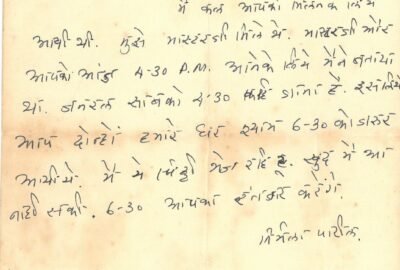 मैं कल आपको मिलने के लिये
आयी थी. मुझे मास्टरजी मिले थे. मास्टरजी और
आपको आज 4-30 P.M. आनेके लिये मैंने बताया
था. जनरल साबको 4-30 कही जाना है. इसलिये
आप दोन्हो हमारे घर श्याम 6-30 को जरूर
आयीये. मैं ये चिठ्ठी भेज रही हूं. खुद मैं आ
नही सकी. 6-30 आपका इंतजार करेंगे.
निर्मला पाटील.